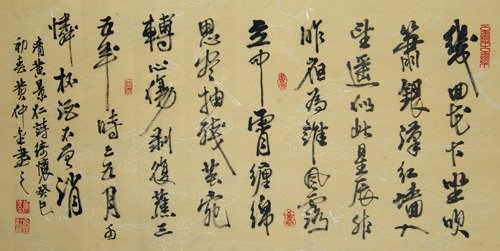 幾回花下坐吹
簫銀漢紅墻入
望遥似此星辰非
昨夜為誰風露
立中宵纏綿
思盡抽殘繭宛
轉心傷剥復蕉三
五年時三五月可
憐杯酒不曾消
清黄景仁詩綺懷癸巳
初春黄仲金書之